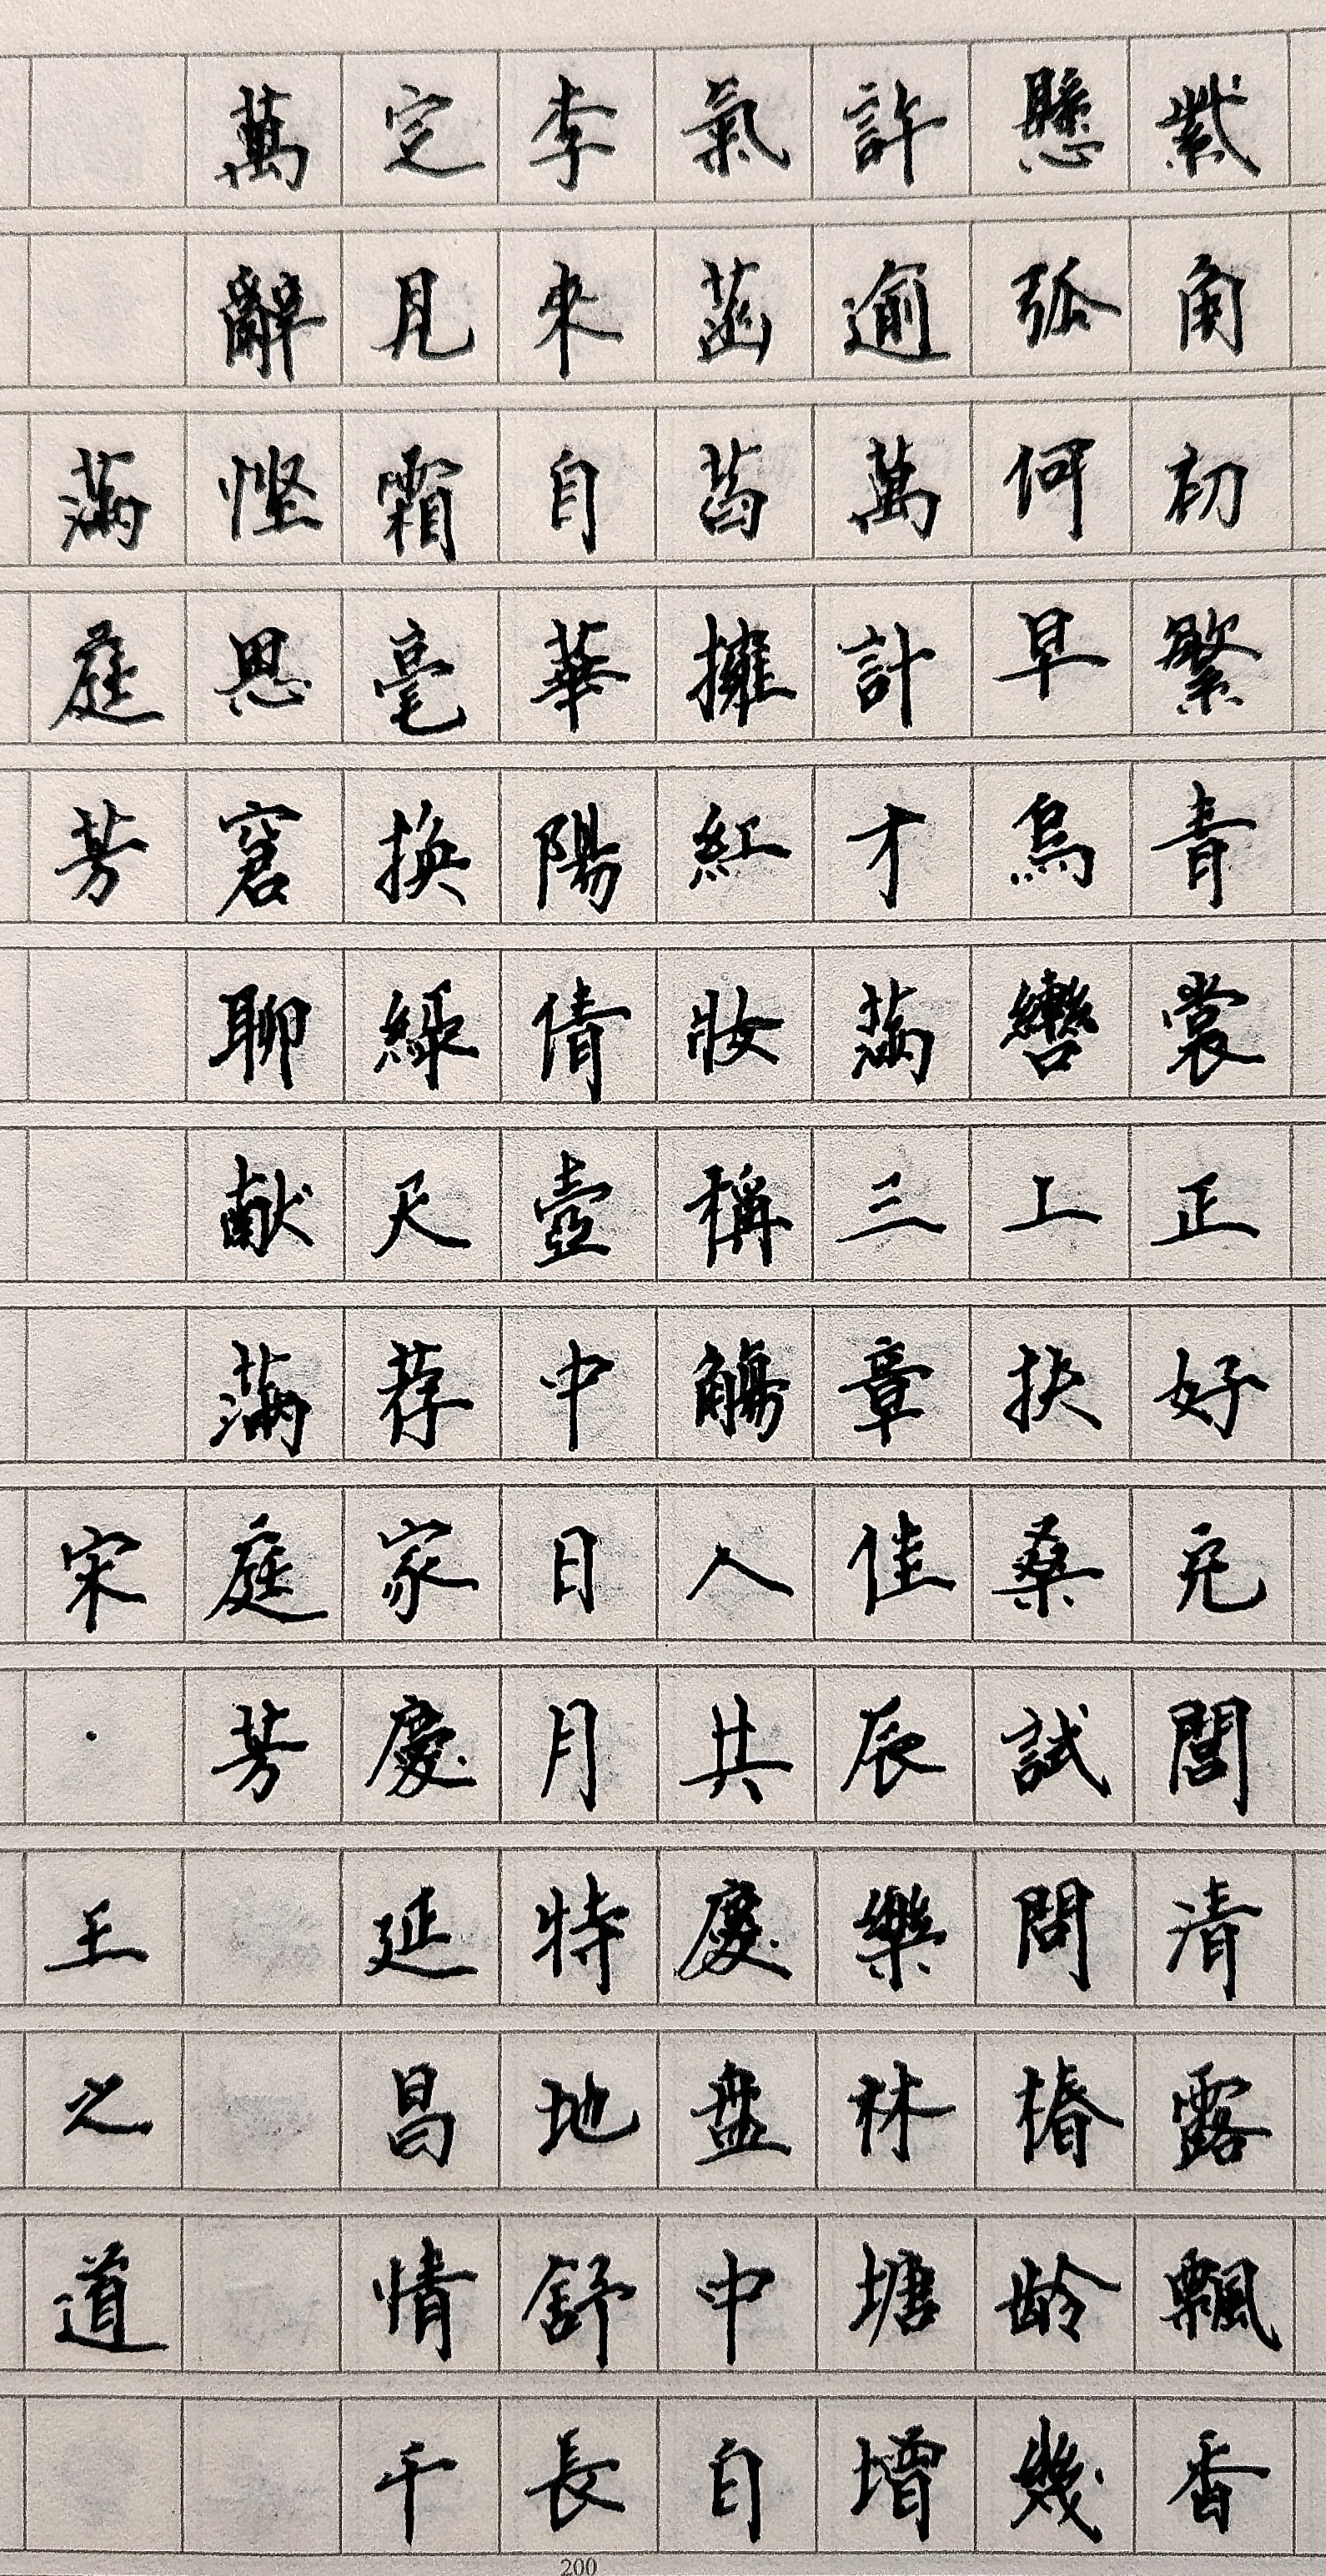 紫角初繁青裳正好充閭清露飄香
懸弧何早烏轡上扶桑試問椿齡幾
許逾萬計才滿三章佳辰樂林塘增
氣菡萏擁紅妝稱觴人共慶盤中自
李來自華陽倩壺中日月特地舒長
定見霜毫換綠天荐家慶延昌情千
萬辭慳思窘聊献滿庭芳
滿庭芳 宋·王之道
200